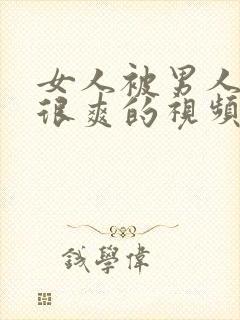 女人被男人
很爽的視頻
錢學偉